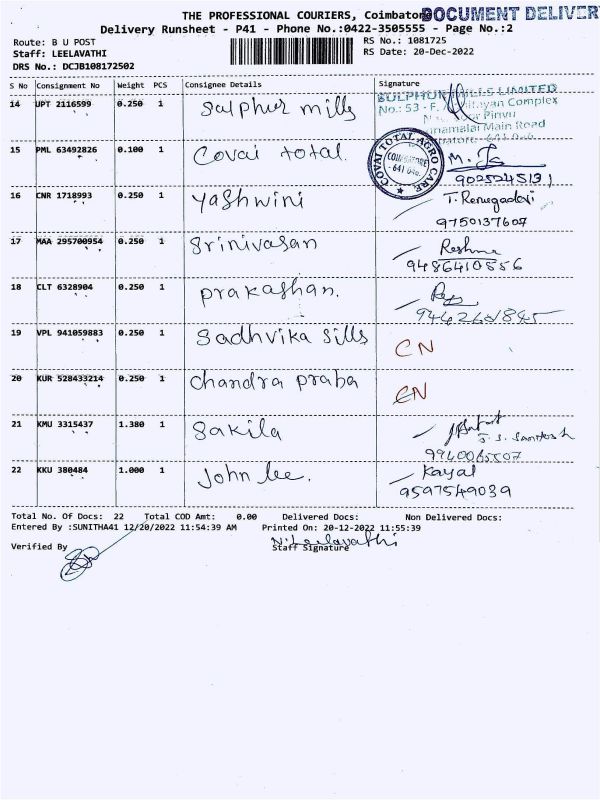 THE PROFESSIONAL COURIERS, Coimbatore
DOCUMENT DELIVER
Delivery Runsheet - P41 - Phone No.:0422-3505555 - Page No.:2
Route: B U POST
RS No.: 1081725
Staff: LEELAVATHI
RS Date: 20-Dec-2022
DRS No.: DCJB108172502
S No Consignment No Weight PCS Consignee Details Signature
14 UPT 2116599 0.250 1 Sulphur mills
SULPHUR MILLS LIMITED
No.: 53 - F, Complex
Pirivu
Main Road
15 PML 63492826 0.100 1 Covai total.
COVAI TOTAL AGRO CARE
COIMBATORE
M.
9025245131
16 CNR 1718993 0.250 1 Yashwini T. Renugadevi
9750137607
17 MAA 295700954 0.250 1 Srinivasan Reshma
9486410556
18 CLT 6328904 0.250 1 prakashan.
19 VPL 941059883 0.250 1 Sadhvika Sills CN
20 KUR 528433214 0.250 1 Chandra praba CN
21 KMU 3315437 1.380 1 Sakila J. S. Santosh
9940065507
22 KKU 380484 1.000 1 John lee. Kayal
9597549039
Total No. Of Docs: 22 Total COD Amt: 0.00 Delivered Docs: Non Delivered Docs:
Entered By :SUNITHA41 12/20/2022 11:54:39 AM Printed On: 20-12-2022 11:55:39
N. Leelavathi
Verified By Staff Signature